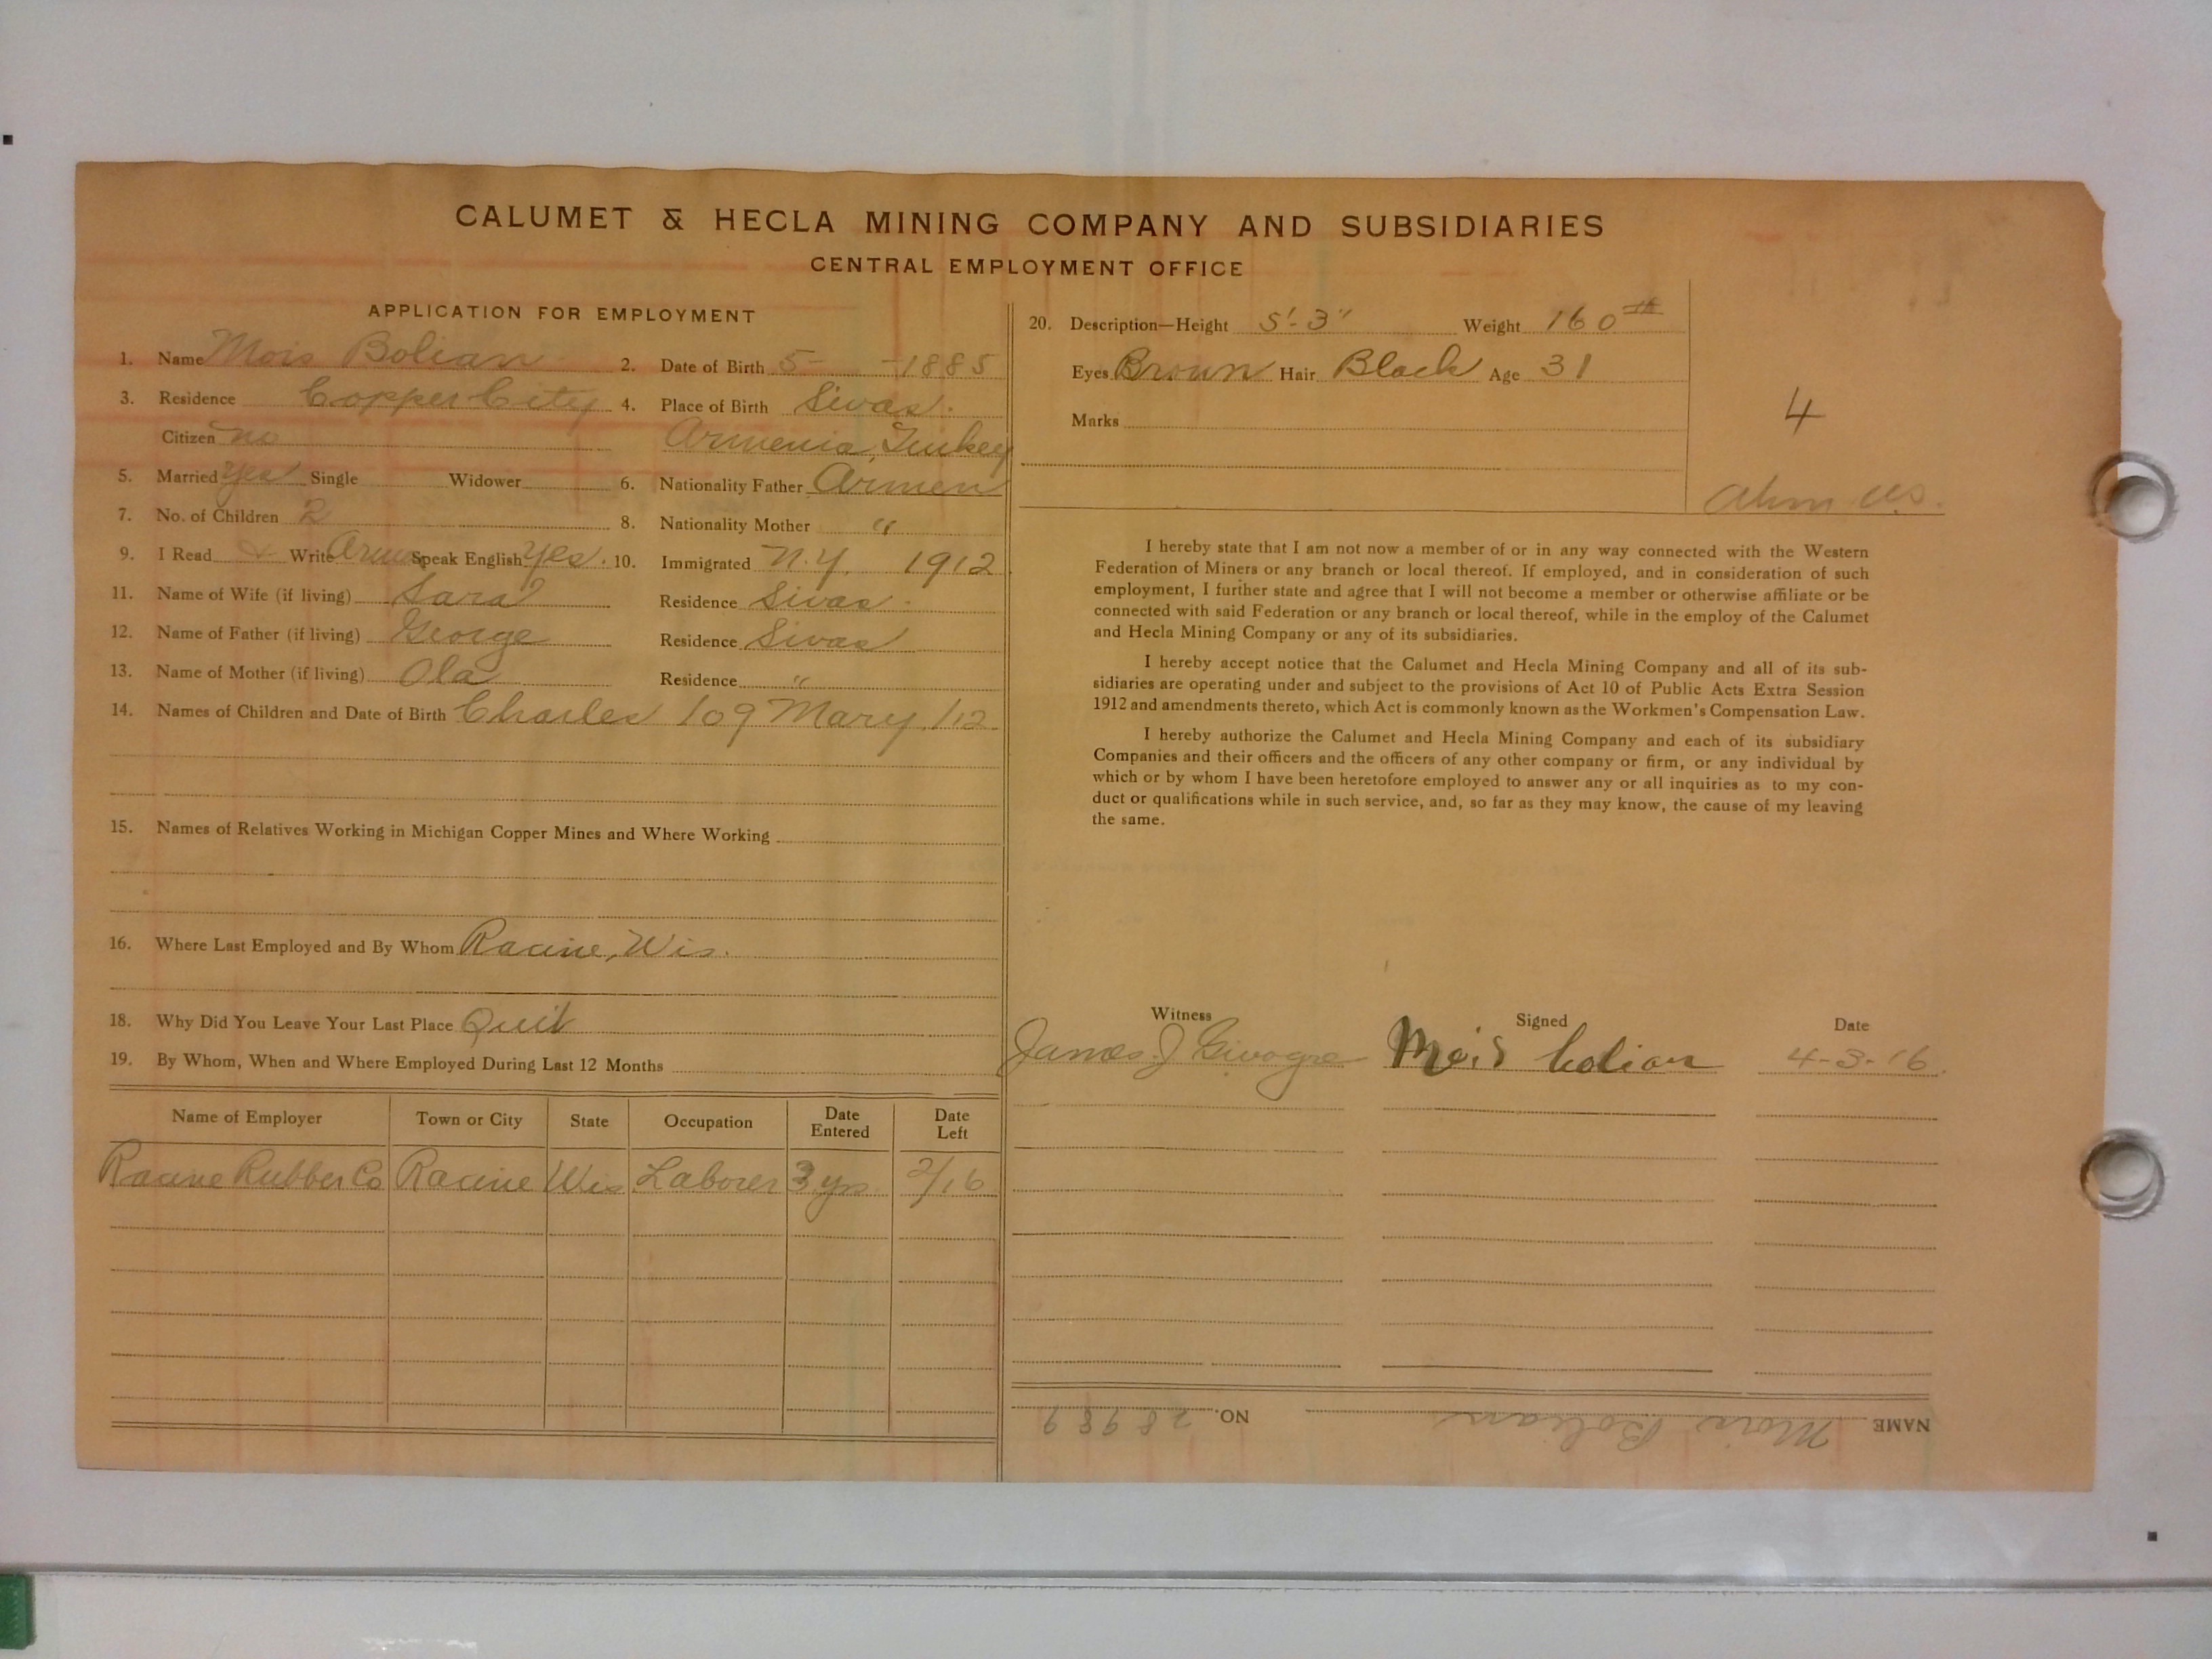 CALUMET & HECLA MINING COMPANY AND SUBSIDIARIES
CENTRAL EMPLOYMENT OFFICE
APPLICATION FOR EMPLOYMENT
1. Name Mois Bolian 2. Date of Birth 5- -1885
3. Residence Copper City 4. Place of Birth Sivas.
Citizen no Armenia, Turkey
5. Married yes Single Widower 6. Nationality Father Armen
7. No. of Children 2 8. Nationality Mother "
9. I Read & Write Armen Speak English yes. 10. Immigrated N.Y. 1912
11. Name of Wife (if living) Sara Residence Sivas
12. Name of Father (if living) George Residence Sivas
13. Name of Mother (if living) Ola Residence "
14. Names of Children and Date of Birth Charles /09 Mary /12
15. Names of Relatives Working in Michigan Copper Mines and Where Working
16. Where Last Employed and By Whom Racine, Wis.
18. Why Did You Leave Your Last Place Quit
19. By Whom, When and Where Employed During Last 12 Months
Name of Employer Town or City State Occupation Date Entered Date Left
Racine Rubber Co Racine Wis Laborer 3 yrs 2/16
20. Description—Height 5'-3" Weight 160#
Eyes Brown Hair Black Age 31
Marks
4
I hereby state that I am not now a member of or in any way connected with the Western
Federation of Miners or any branch or local thereof. If employed, and in consideration of such
employment, I further state and agree that I will not become a member or otherwise affiliate or be
connected with said Federation or any branch or local thereof, while in the employ of the Calumet
and Hecla Mining Company or any of its subsidiaries.
I hereby accept notice that the Calumet and Hecla Mining Company and all of its sub-
sidiaries are operating under and subject to the provisions of Act 10 of Public Acts Extra Session
1912 and amendments thereto, which Act is commonly known as the Workmen's Compensation Law.
I hereby authorize the Calumet and Hecla Mining Company and each of its subsidiary
Companies and their officers and the officers of any other company or firm, or any individual by
which or by whom I have been heretofore employed to answer any or all inquiries as to my con-
duct or qualifications while in such service, and, so far as they may know, the cause of my leaving
the same.
Witness Signed Date
James J Mois bolian 4-3-16.
NAME Mois Bolian NO. 28989